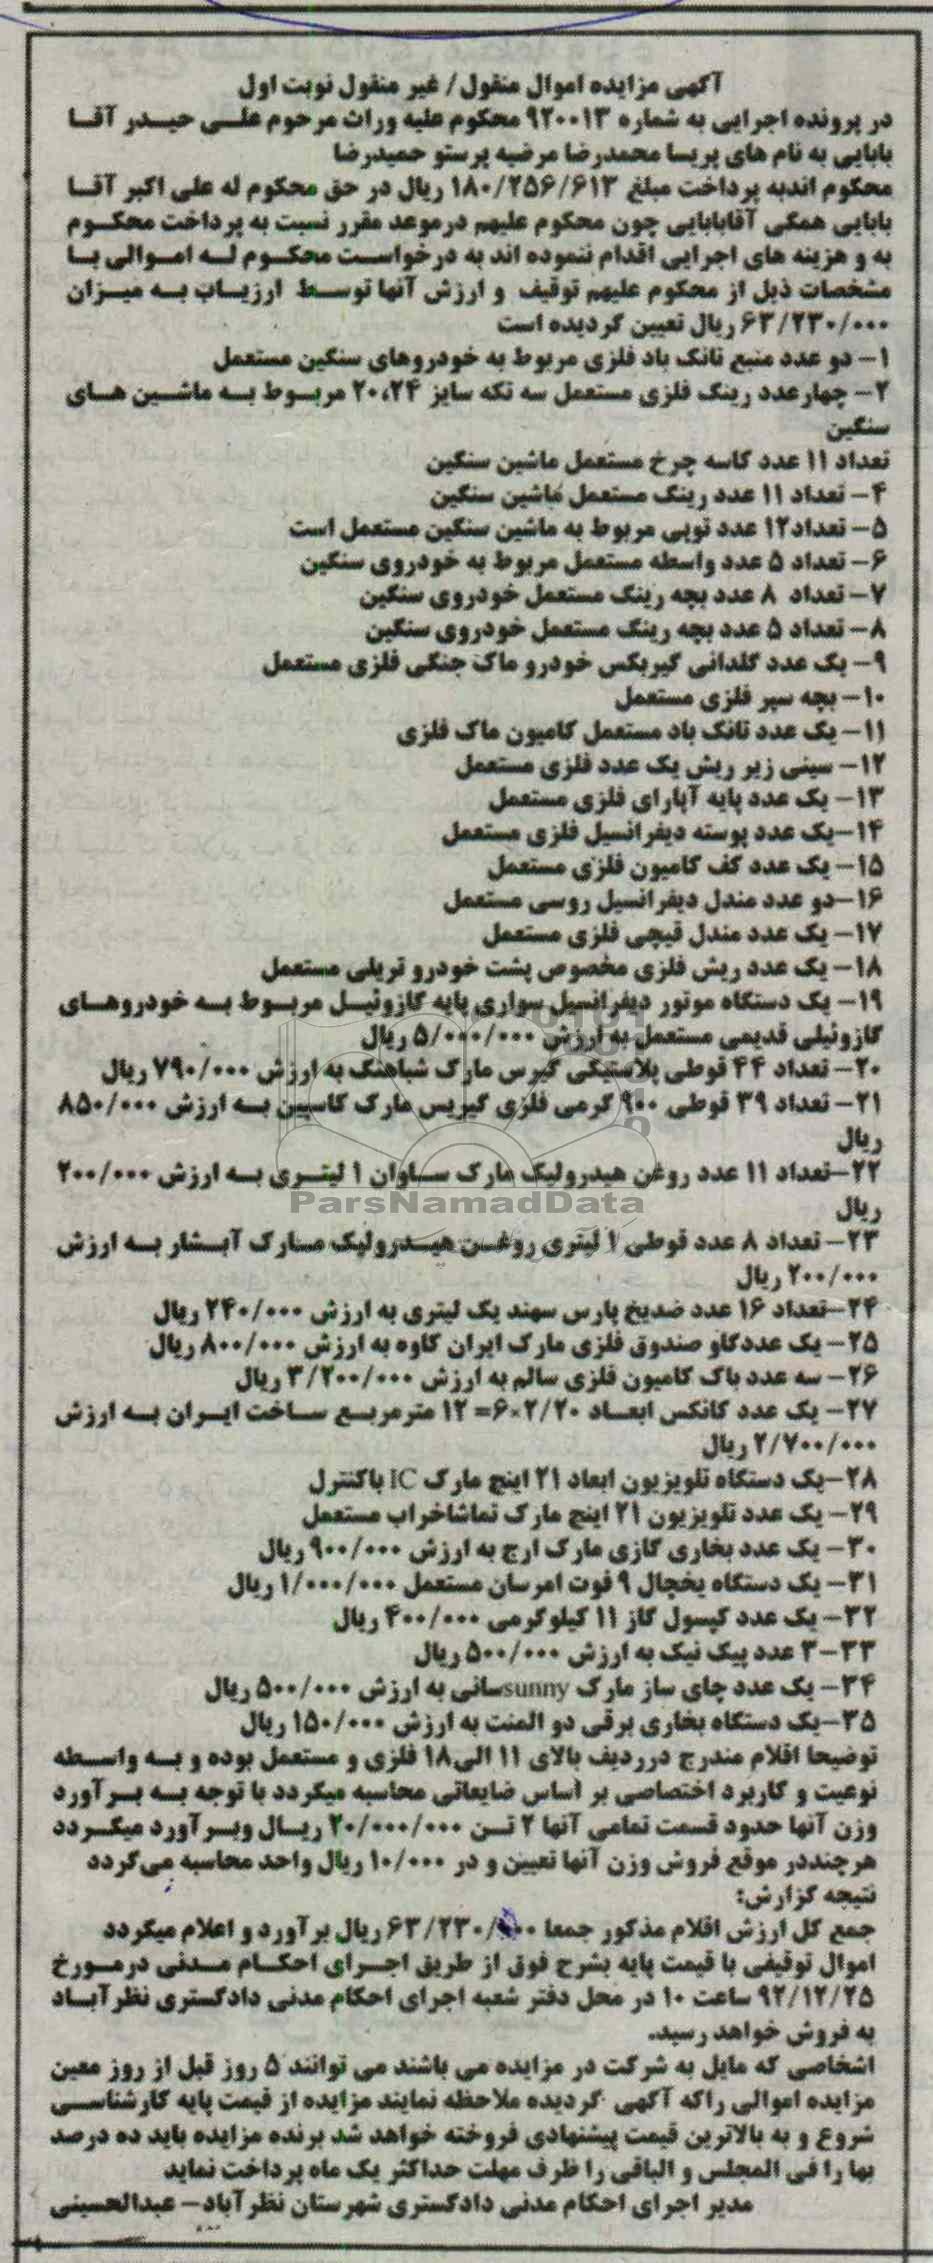 آگهی مزایده اموال منقول / غیر منقول نوبت اول
در پرونده اجرایی به شماره ۹۲۰۰۱۳ محکوم علیه وراث مرحوم علی حیدر آقا
بابایی به نام های پریسا محمدرضا مرضیه پرستو حمیدرضا
محکوم اندبه پرداخت مبلغ ۱۸۰/۲۵۶/۶۱۳ ریال در حق محکوم له علی اکبر آقا
بابایی همگی آقابابایی چون محکوم علیهم درموعد مقرر نسبت به پرداخت محکوم
به و هزینه های اجرایی اقدام ننموده اند به درخواست محکوم له اموالی با
مشخصات ذیل از محکوم علیهم توقیف و ارزش آنها توسط ارزیاب به میزان
۶۳/۲۳۰/۰۰۰ ریال تعیین گردیده است
۱- دو عدد منبع تانک باد فلزی مربوط به خودروهای سنگین مستعمل
۲- چهارعدد رینگ فلزی مستعمل سه تکه سایز ۲۰،۲۴ مربوط به ماشین های
سنگین
تعداد ۱۱ عدد کاسه چرخ مستعمل ماشین سنگین
۴- تعداد ۱۱ عدد رینگ مستعمل ماشین سنگین
۵- تعداد۱۲ عدد توپی مربوط به ماشین سنگین مستعمل است
۶- تعداد ۵ عدد واسطه مستعمل مربوط به خودروی سنگین
۷- تعداد ۸ عدد بچه رینگ مستعمل خودروی سنگین
۸- تعداد ۵ عدد بچه رینگ مستعمل خودروی سنگین
۹- یک عدد گلدانی گیربکس خودرو ماک جنگی فلزی مستعمل
۱۰- بچه سپر فلزی مستعمل
۱۱- یک عدد تانک باد مستعمل کامیون ماک فلزی
۱۲- سینی زیر ریش یک عدد فلزی مستعمل
۱۳- یک عدد پایه آپارای فلزی مستعمل
۱۴-یک عدد پوسته دیفرانسیل فلزی مستعمل
۱۵- یک عدد کف کامیون فلزی مستعمل
۱۶-دو عدد مندل دیفرانسیل روسی مستعمل
۱۷- یک عدد مندل قیچی فلزی مستعمل
۱۸- یک عدد ریش فلزی مخصوص پشت خودرو تریلی مستعمل
۱۹- یک دستگاه موتور دیفرانسیل سواری پایه گازوئیل مربوط به خودروهای
گازوئیلی قدیمی مستعمل به ارزش ۵/۰۰۰/۰۰۰ ریال
۲۰- تعداد ۴۴ قوطی پلاستیکی گیرس مارک شباهنگ به ارزش ۷۹۰/۰۰۰ ریال
۲۱- تعداد ۳۹ قوطی ۹۰۰ گرمی فلزی گیریس مارک کاسپین به ارزش ۸۵۰/۰۰۰
ریال
۲۲-تعداد ۱۱ عدد روغن هیدرولیک مارک ساوان ۱ لیتری به ارزش ۲۰۰/۰۰۰
ریال
ParsNamadData
۲۳- تعداد ۸ عدد قوطی ۱ لیتری روغن هیدرولیک مارک آبشار به ارزش
۲۰۰/۰۰۰ ریال
۲۴-تعداد ۱۶ عدد ضدیخ پارس سهند یک لیتری به ارزش ۲۴۰/۰۰۰ ریال
۲۵- یک عددگاو صندوق فلزی مارک ایران کاوه به ارزش ۸۰۰/۰۰۰ ریال
۲۶- سه عدد باک کامیون فلزی سالم به ارزش ۳/۲۰۰/۰۰۰ ریال
۲۷- یک عدد کانکس ابعاد ۶×۲/۲۰= ۱۲ مترمربع ساخت ایران به ارزش
۲/۷۰۰/۰۰۰ ریال
۲۸-یک دستگاه تلویزیون ابعاد ۲۱ اینچ مارک IC باکنترل
۲۹- یک عدد تلویزیون ۲۱ اینچ مارک تماشاخراب مستعمل
۳۰- یک عدد بخاری گازی مارک ارج به ارزش ۹۰۰/۰۰۰ ریال
۳۱- یک دستگاه یخچال ۹ فوت امرسان مستعمل ۱/۰۰۰/۰۰۰ ریال
۳۲- یک عدد کپسول گاز ۱۱ کیلوگرمی ۴۰۰/۰۰۰ ریال
۳۳-۳ عدد پیک نیک به ارزش ۵۰۰/۰۰۰ ریال
۳۴- یک عدد چای ساز مارک sunnyسانی به ارزش ۵۰۰/۰۰۰ ریال
۳۵-یک دستگاه بخاری برقی دو المنت به ارزش ۱۵۰/۰۰۰ ریال
توضیحا اقلام مندرج درردیف بالای ۱۱ الی۱۸ فلزی و مستعمل بوده و به واسطه
نوعیت و کاربرد اختصاصی بر اساس ضایعاتی محاسبه میگردد با توجه به برآورد
وزن آنها حدود قسمت تمامی آنها ۲ تن ۲۰/۰۰۰/۰۰۰ ریال وبرآورد میگردد
هرچنددر موقع فروش وزن آنها تعیین و در ۱۰/۰۰۰ ریال واحد محاسبه می‌گردد
نتیجه گزارش:
جمع کل ارزش اقلام مذکور جمعا ۶۳/۲۳۰/۰۰۰ ریال برآورد و اعلام میگردد
اموال توقیفی با قیمت پایه بشرح فوق از طریق اجرای احکام مدنی درمورخ
۹۲/۱۲/۲۵ ساعت ۱۰ در محل دفتر شعبه اجرای احکام مدنی دادگستری نظرآباد
به فروش خواهد رسید.
اشخاصی که مایل به شرکت در مزایده می باشند می توانند ۵ روز قبل از روز معین
مزایده اموالی راکه آگهی گردیده ملاحظه نمایند مزایده از قیمت پایه کارشناسی
شروع و به بالاترین قیمت پیشنهادی فروخته خواهد شد برنده مزایده باید ده درصد
بها را فی المجلس و الباقی را ظرف مهلت حداکثر یک ماه پرداخت نماید
مدیر اجرای احکام مدنی دادگستری شهرستان نظرآباد- عبدالحسینی